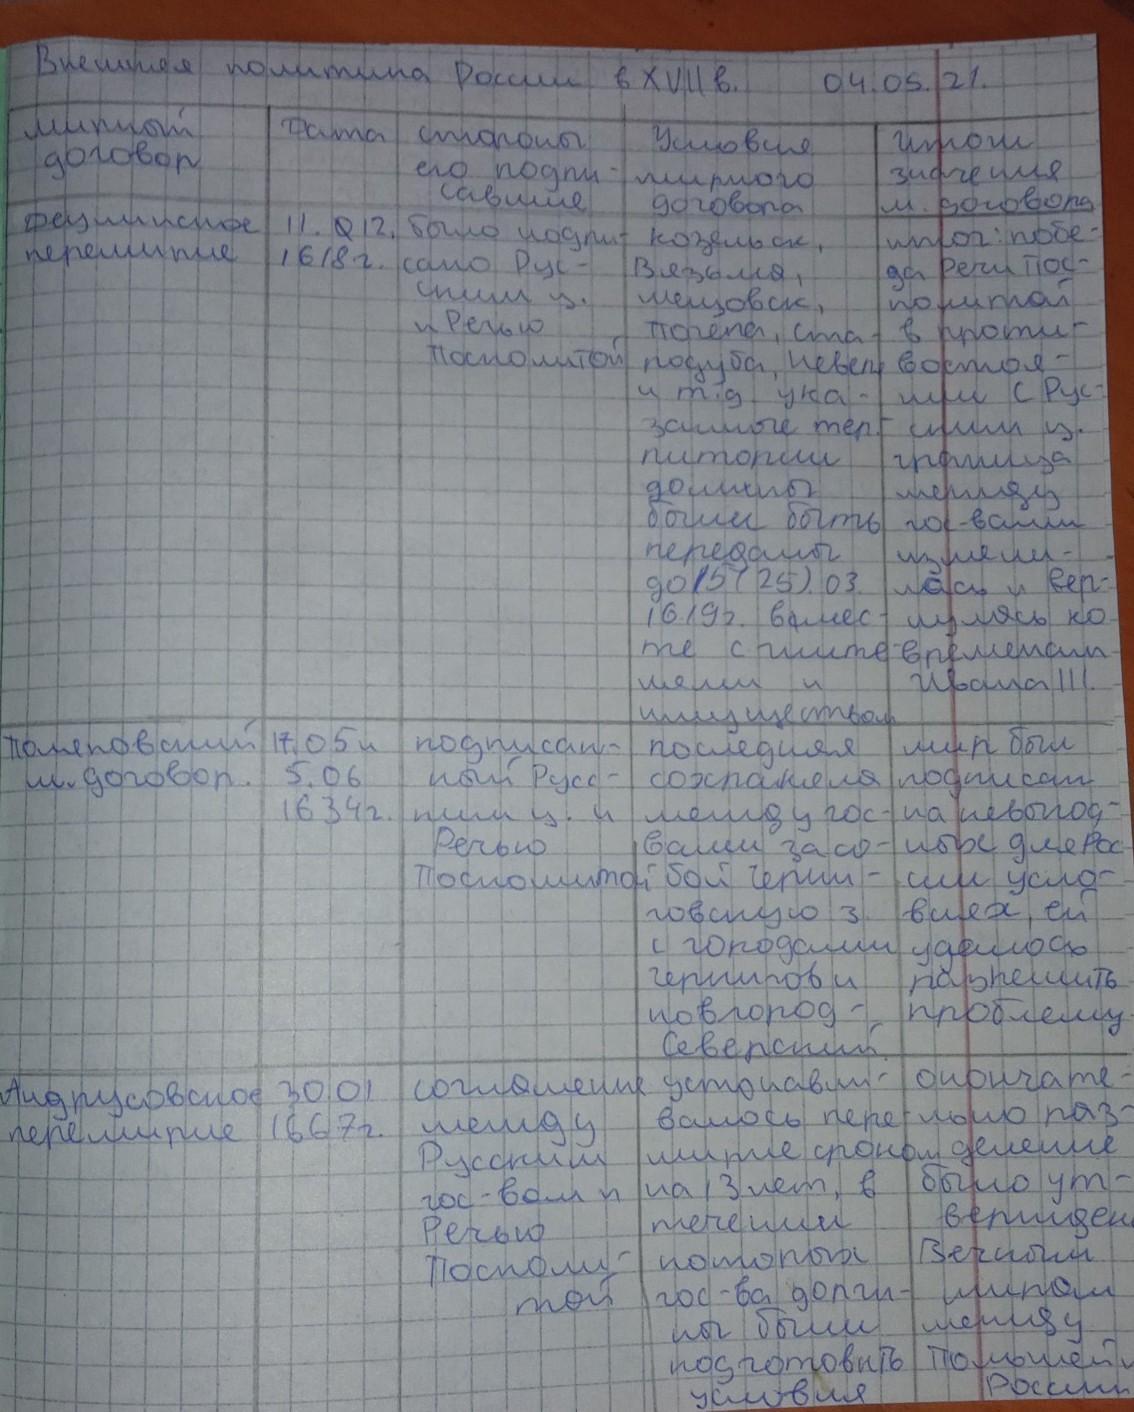 Внешняя политика России в XVII в. 04.05.21.
мирный договор
Дата
стороны его подписавшие
Условия мирного договора
Итоги значения м. договора
Деулинское перемирие
11.012. 1618г.
было подпи-
сано Рус-
ским ц.
и Речью
Посполитой
козельск,
Вязьма,
мещовск,
Почепа, ста-
родуба, Невель
и т.д. ука-
занные тер-
ритории
должны
были быть
переданы
до 15 (25).03.
1619г. вмес-
те с жите-
лями и
имуществом
итог: побе-
да Речи Пос-
политой
в проти-
востоя-
нии с Рус-
ским ц.
граница
между
гос-вами
измени-
лась и вер-
нулась ко
временам
Ивана III.
Поляновский
м. договор.
17.05 и
5.06
1634г.
подписан-
ный Русс-
ким ц. и
Речью
Посполитой
последняя
сохраняла
между гос-
вами за со-
бой Черни-
говскую з.
с городами
чернигов и
новгород-
Северский.
мир был
подписан
на невыгод-
ных для Рос-
сии усло-
виях, ей
удалось
разрешить
проблему
Андрусовское
перемирие
30 01
1667г.
соглашение
между
Русским
гос-вом и
Речью
Посполи-
той
устанавли-
валось пере-
мирие сроком
на 13 лет, в
течении
которых
гос-ва должн-
ны были
подготовить
условия
окончате-
льно раз-
деление
было ут-
вержден
Вечным
миром
между
Польшей и
Россией